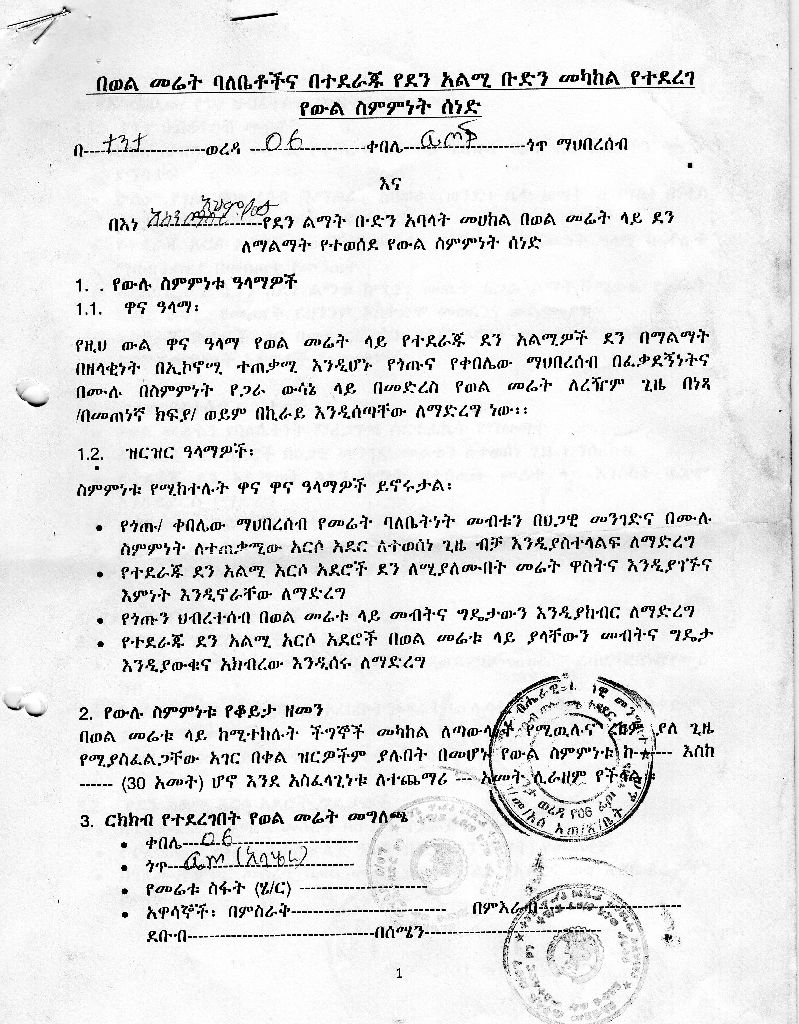 በወል መሬት ባለቤቶችና በተደራጁ የደን አልሚ ቡድን መካከል የተደረገ
የውል ስምምነት ሰነድ
በ---ተንታ---ወረዳ ---06---ቀበሌ------ጎጥ ማህበረሰብ
እና
በእነ የደን ልማት ቡድን አባላት መሀከል በወል መሬት ላይ ደን
ለማልማት የተወሰደ የውል ስምምነት ሰነድ
1. . የውሉ ስምምነቱ ዓላማዎች
1.1. ዋና ዓላማ፡
የዚህ ውል ዋና ዓላማ የወል መሬት ላይ የተደራጁ ደን አልሚዎች ደን በማልማት
በዘላቂነት በኢኮኖሚ ተጠቃሚ እንዲሆኑ የጎጡና የቀበሌው ማህበረሰብ በፈቃደኝነትና
በሙሉ በስምምነት የጋራ ውሳኔ ላይ በመድረስ የወል መሬት ለረዥም ጊዜ በነጻ
/በመጠነኛ ክፍያ/ ወይም በኪራይ እንዲሰጣቸው ለማድረግ ነው፡፡
1.2. ዝርዝር ዓላማዎች፡
ስምምነቱ የሚከተሉት ዋና ዋና ዓላማዎች ይኖሩታል፡
• የጎጡ/ ቀበሌው ማህበረሰብ የመሬት ባለቤትነት መብቱን በህጋዊ መንገድና በሙሉ
ስምምነት ለተጠቃሚው አርሶ አደር ለተወሰነ ጊዜ ብቻ እንዲያስተላልፍ ለማድረግ
• የተደራጁ ደን አልሚ አርሶ አደሮች ደን ለሚያለሙበት መሬት ዋስትና እንዲያገኙና
እምነት እንዲኖራቸው ለማድረግ
• የጎጡን ህብረተሰብ በወል መሬቱ ላይ መብትና ግዴታውን እንዲያከብር ለማድረግ
• የተደራጁ ደን አልሚ አርሶ አደሮች በወል መሬቱ ላይ ያላቸውን መብትና ግዴታ
እንዲያውቁና አክብረው እንዲሰሩ ለማድረግ
2. የውሉ ስምምነቱ የቆይታ ዘመን
በወል መሬቱ ላይ ከሚተከሉት ችግኞች መካከል ለጣውላነት የሚዉሉና ረዘም ያለ ጊዜ
የሚያስፈልጋቸው አገር በቀል ዝርዎችም ያሉበት በመሆኑ የውል ስምምነቱ ከ------ እስከ
------ (30 አመት) ሆኖ እንደ አስፈላጊነቱ ለተጨማሪ --- አመት ሊራዘም የችላል፡፡
3. ርክክብ የተደረገበት የወል መሬት መግለጫ
• ቀበሌ---06------------------
• ጎጥ--------------------------
• የመሬቱ ስፋት (ሄ/ር) ------------------
• አዋሳኞች፡ በምስራቅ---------------------- በምእራብ--------------------
ደቡብ--------------------------በሰሜን------------------------
1